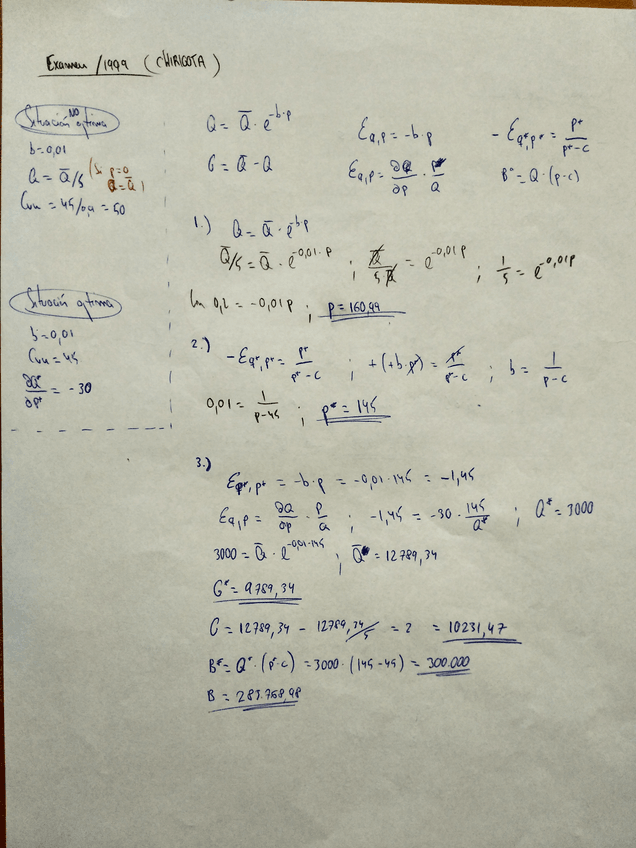 Examen / 1999 (CHIRIGOTA)
Situación NO óptima
b = 0,01
Q = Q̄/5 (Si p=0 Q = Q̄)
Cvu = 45/0,9 = 50
Situación óptima
b = 0,01
Cvu = 45
∂Q*/∂p* = -30
Q = Q̄ · e^-b·p
G = Q̄ - Q
Eq,p = -b·p
Eq,p = ∂Q/∂p · p*/Q
- Eq*,p* = p*/p*-c
B° = Q · (p-c)
1.) Q = Q̄ · e^-bp
Q̄/5 = Q̄ · e^-0,01·p ; Q̄/5·Q̄ = e^-0,01p ; 1/5 = e^-0,01p
Ln 0,2 = -0,01p ; p = 160,94
2.) - Eq*,p* = p*/p*-c ; +(+b·p*) = p*/p*-c ; b = 1/p-c
0,01 = 1/p-45 ; p* = 145
3.) Eq*,p* = -b·p = -0,01·145 = -1,45
Eq,p = ∂Q/∂p · p/Q ; -1,45 = -30 · 145/Q* ; Q* = 3000
3000 = Q̄ · e^-0,01·145 ; Q̄* = 12789,34
G* = 9789,34
G = 12789,34 - 12789,34/5 = 2 = 10231,47
B* = Q* · (p*-c) = 3000 · (145-45) = 300.000